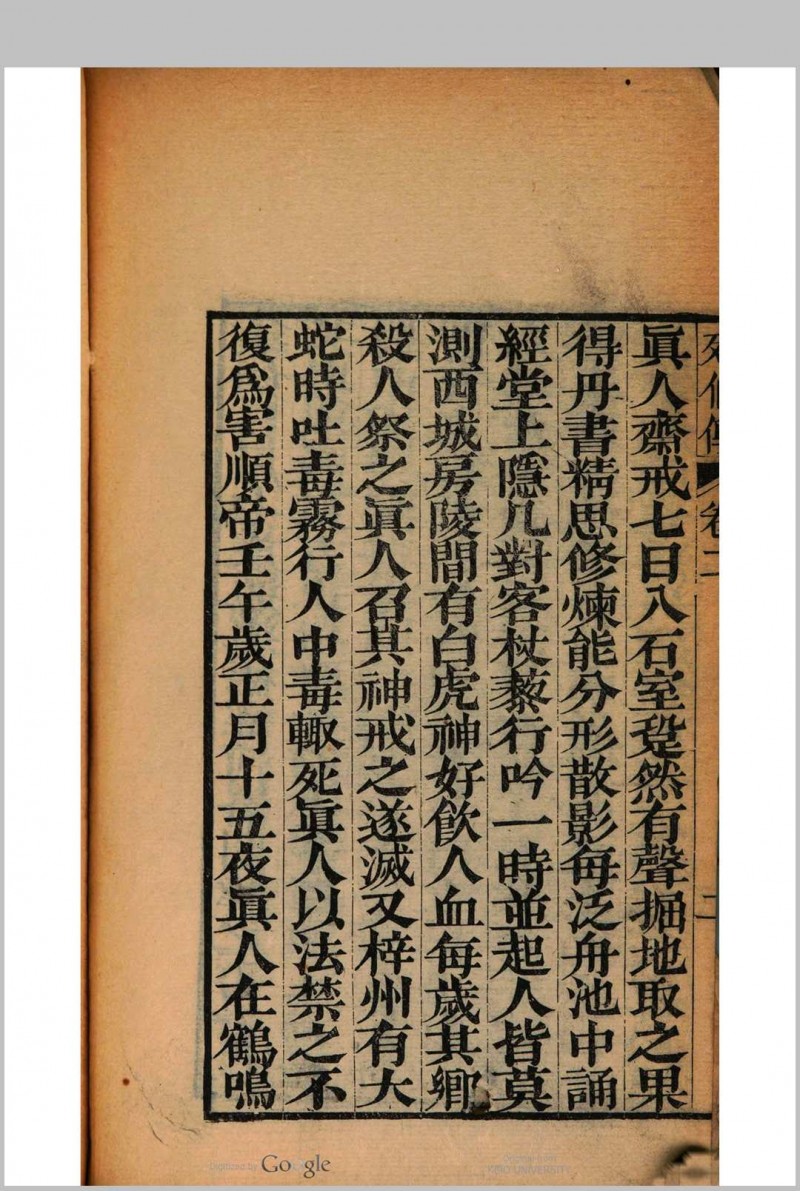 列仙傳 卷二 二
眞人齋戒七日入石室跫然有聲掘地取之果
得丹書精思修煉能分形散影每泛舟池中誦
經堂上隱几對客杖藜行吟一時並起人皆莫
測西城房陵間有白虎神好飮人血每歲其鄉
殺人祭之眞人召其神戒之遂滅又梓州有大
蛇時吐毒霧行人中毒輙死眞人以法禁之不
復爲害順帝壬午歲正月十五夜眞人在鶴鳴
Digitized by Google
KEIO UNIVERSITY